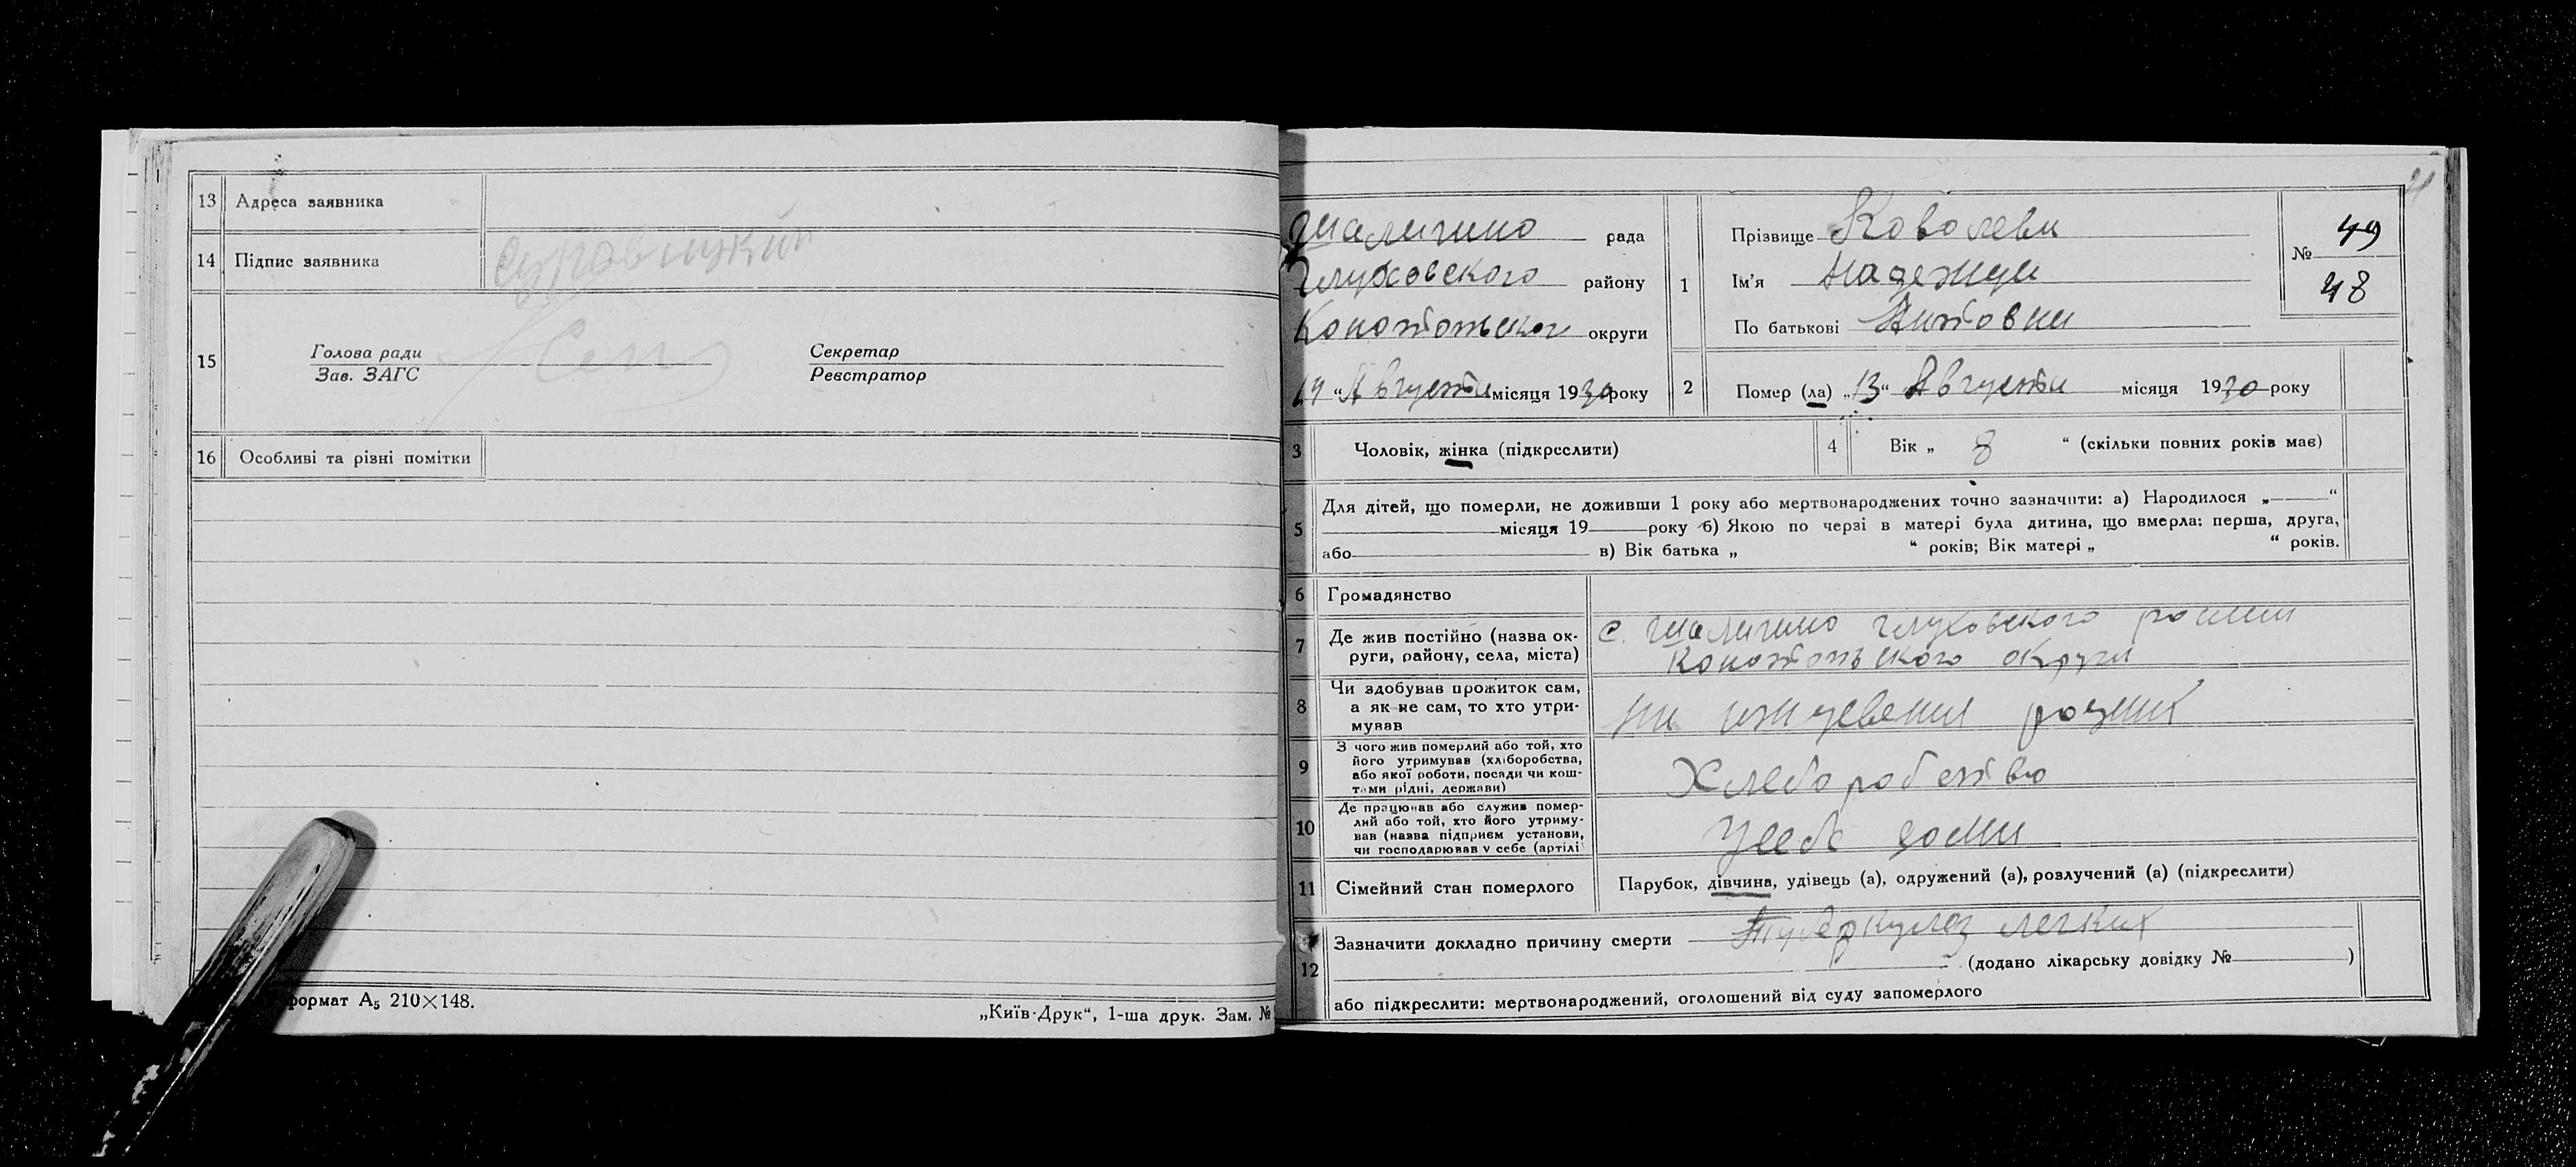 13 Адреса заявника
14 Підпис заявника
15 Голова ради
Зав. ЗАГС
Секретар
Реєстратор
16 Особливі та різні помітки
формат А5 210×148.
„Київ-Друк“, 1-ша друк. Зам. №
Шалигино рада
Глуховского району
Конотопьског округи
„Августа місяця 1930 року
1 Прізвище Ковалева
Ім'я Надежда
По батькові
№ 49
48
2 Помер (ла) „13“ Августа місяця 1930 року
3 Чоловік, жінка (підкреслити)
4 Вік „ 8 “ (скільки повних років має)
5 Для дітей, що померли, не доживши 1 року або мертвонароджених точно зазначити: а) Народилося „ “
місяця 19 року б) Якою по черзі в матері була дитина, що вмерла: перша, друга,
або в) Вік батька „ “ років; Вік матері „ “ років.
6 Громадянство
7 Де жив постійно (назва ок-
руги, району, села, міста)
с. Шалигино Глуховского
Конотопьского округа
8 Чи здобував прожиток сам,
а як не сам, то хто утри-
мував
На иждевении
9 З чого жив померлий або той, хто
його утримував (хліборобства,
або якої роботи, посади чи кош-
тами рідні, держави)
Хлеборобство
10 Де працював або служив помер-
лий або той, хто його утриму-
вав (назва підприєм установи,
чи господарював у себе (артілі
Усебя дома
11 Сімейний стан померлого
Парубок, дівчина, удівець (а), одружений (а), розлучений (а) (підкреслити)
12 Зазначити докладно причину смерти Туберкулез легких
(додано лікарську довідку № )
або підкреслити: мертвонароджений, оголошений від суду запомерлого